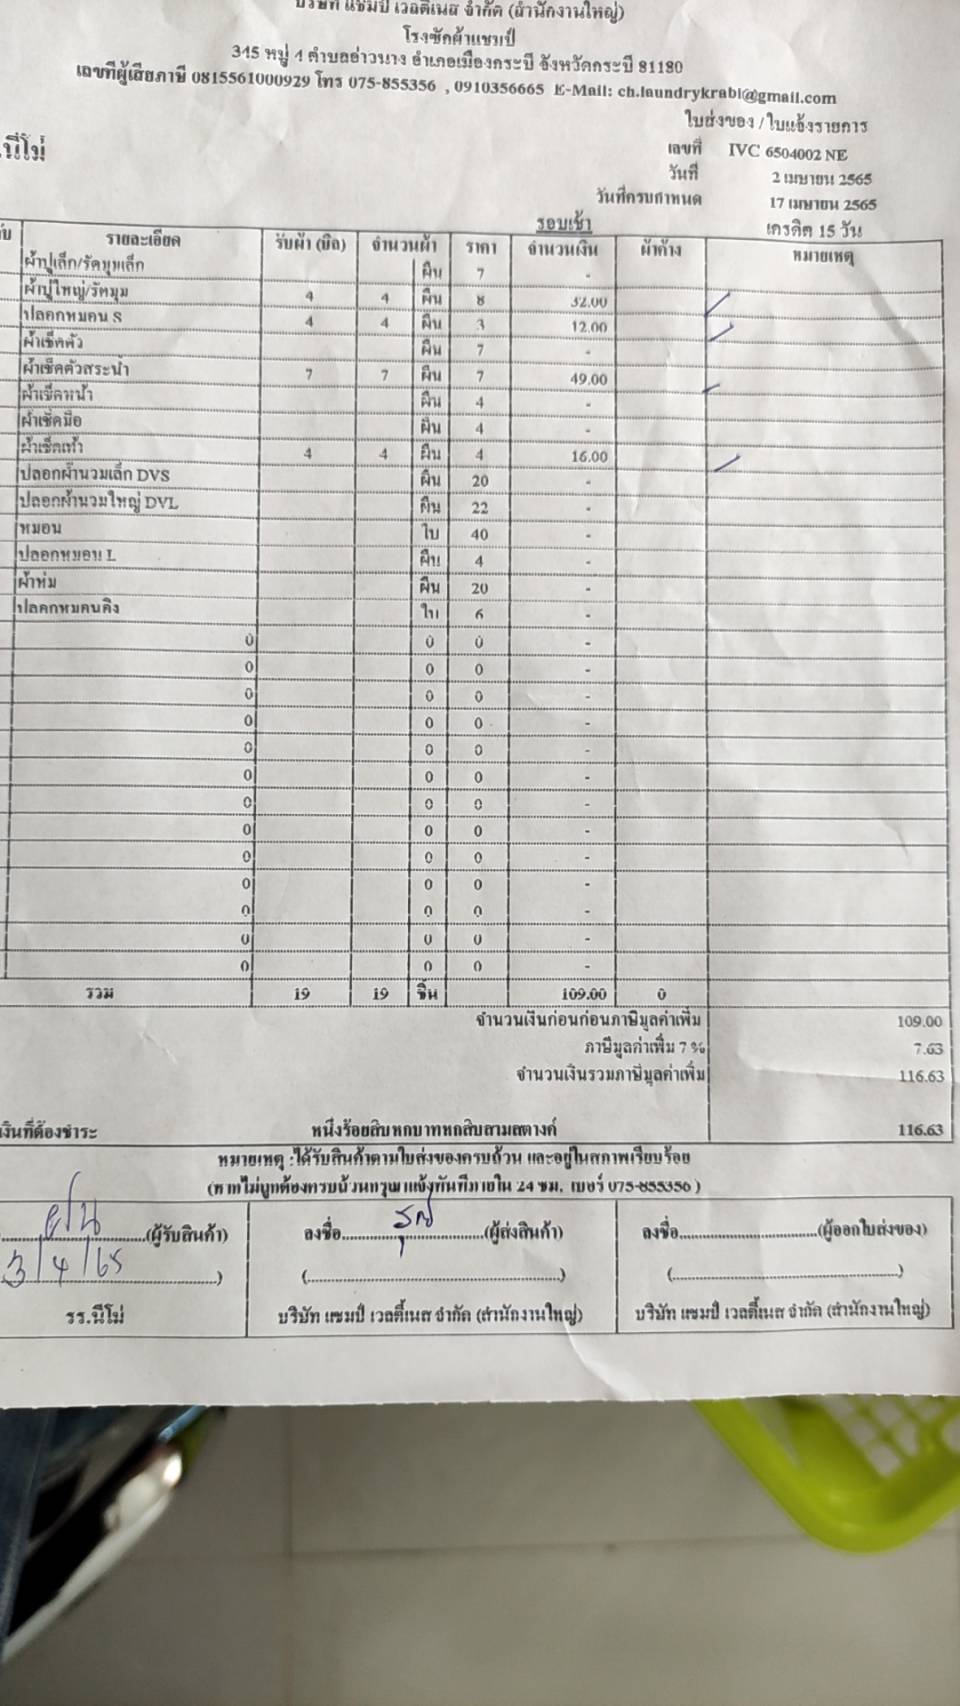 บริษัท แชมป์ เวลตี้เนส จำกัด (สำนักงานใหญ่)
โรงซักผ้าแชมป์
345 หมู่ 4 ตำบลอ่าวนาง อำเภอเมืองกระบี่ จังหวัดกระบี่ 81180
เลขที่ผู้เสียภาษี 0815561000929 โทร 075-855356 , 0910356665 E-Mail: ch.laundrykrabi@gmail.com
ใบส่งของ / ใบแจ้งรายการ
นีโม่
เลขที่ IVC 6504002 NE
วันที่ 2 เมษายน 2565
วันที่ครบกำหนด 17 เมษายน 2565
รอบเช้า เครดิต 15 วัน
รายละเอียด รับผ้า (บิล) จำนวนผ้า ราคา จำนวนเงิน ผ้าค้าง หมายเหตุ
ผ้าปูเล็ก/รัดมุมเล็ก ผืน 7 -
ผ้าปูใหญ่/รัดมุม 4 4 ผืน 8 32.00
ปลอกหมอน S 4 4 ผืน 3 12.00
ผ้าเช็ดตัว ผืน 7 -
ผ้าเช็ดตัวสระน้ำ 7 7 ผืน 7 49.00
ผ้าเช็ดหน้า ผืน 4 -
ผ้าเช็ดมือ ผืน 4 -
ผ้าเช็ดเท้า 4 4 ผืน 4 16.00
ปลอกผ้านวมเล็ก DVS ผืน 20 -
ปลอกผ้านวมใหญ่ DVL ผืน 22 -
หมอน ใบ 40 -
ปลอกหมอน L ผืน 4 -
ผ้าห่ม ผืน 20 -
ปลอกหมอนคิง ใบ 6 -
0 0 0 -
0 0 0 -
0 0 0 -
0 0 0 -
0 0 0 -
0 0 0 -
0 0 0 -
0 0 0 -
0 0 0 -
0 0 0 -
0 0 0 -
0 0 0 -
0 0 0 -
รวม 19 19 ชิ้น 109.00 0
จำนวนเงินก่อนก่อนภาษีมูลค่าเพิ่ม 109.00
ภาษีมูลค่าเพิ่ม 7 % 7.63
จำนวนเงินรวมภาษีมูลค่าเพิ่ม 116.63
เงินที่ต้องชำระ หนึ่งร้อยสิบหกบาทหกสิบสามสตางค์ 116.63
หมายเหตุ :ได้รับสินค้าตามใบส่งของครบถ้วน และอยู่ในสภาพเรียบร้อย
(หากไม่ถูกต้องครบถ้วนกรุณาแจ้งทันทีภายใน 24 ชม. เบอร์ 075-855356 )
(ผู้รับสินค้า) ลงชื่อ (ผู้ส่งสินค้า) ลงชื่อ (ผู้ออกใบส่งของ)
3/4/65 ) ( ) ( )
รร.นีโม่ บริษัท แชมป์ เวลตี้เนส จำกัด (สำนักงานใหญ่) บริษัท แชมป์ เวลตี้เนส จำกัด (สำนักงานใหญ่)